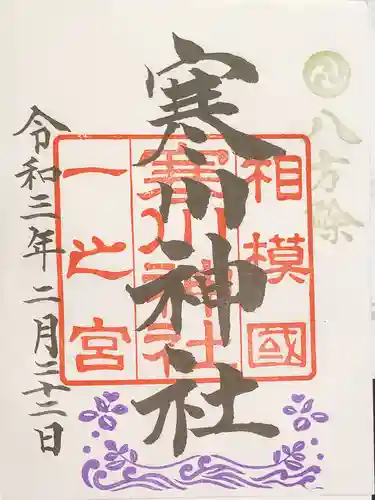 八方除
相模國
寒川神社
一之宮
寒川神社
令和三年二月二十二日